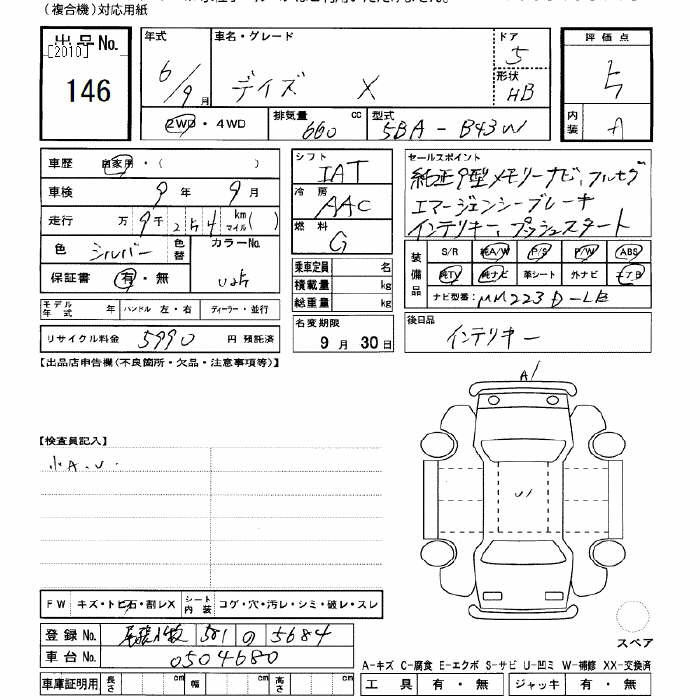 (複合機)対応用紙
出品No.
[2010]
146
年式
6/9月
車名・グレード
デイズ X
ドア
5
形状
HB
評価点
2WD・4WD
排気量 660 cc
型式 5BA-B43W
内装
A
車歴 自家用・( )
車検 9年 9月
走行 万 9千 2 5 4 km マイル( )
色 シルバー
色替
カラーNo.
保証書 有・無
モデル年式 年
ハンドル 左・右
ディーラー・並行
リサイクル料金 5990 円 預託済
シフト IAT
冷房 AAC
燃料 G
乗車定員 名
積載量 kg
総重量 kg
名変期限
9月30日
セールスポイント
純正9型メモリーナビ、フルセグ
エマージェンシーブレーキ
インテリキー、プッシュスタート
装備品
S/R 純A/W P/S P/W ABS
純TV 純ナビ 革シート 外ナビ エアB
ナビ型番: MM223D-LE
後日品
インテリキー
【出品店申告欄(不良箇所・欠品・注意事項等)】
A1
【検査員記入】
小A.U.
U1
FW キズ・トビ石・割レX
シート内装 コゲ・穴・汚レ・シミ・破レ・スレ
登録No. 尾張小牧 581 の 5684
車台No. 0504680
車庫証明用 長さ cm 幅 cm 高さ cm
スペア
A-キズ C-腐食 E-エクボ S-サビ U-凹ミ W-補修 XX-交換済
工具 有・無 ジャッキ 有・無